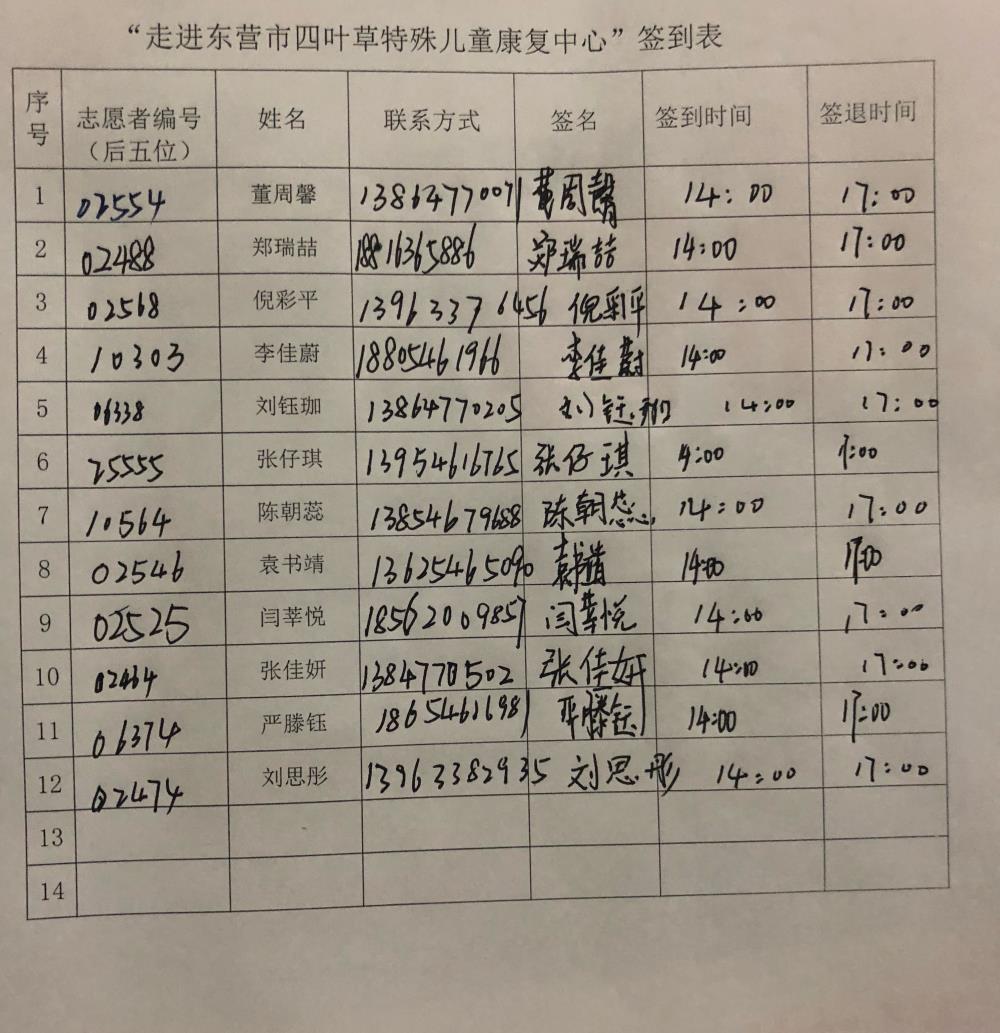 “走进东营市四叶草特殊儿童康复中心”签到表
序号 志愿者编号（后五位） 姓名 联系方式 签名 签到时间 签退时间
1 02554 董周馨 13864770071 董周馨 14:00 17:00
2 02488 郑瑞喆 18816365886 郑瑞喆 14:00 17:00
3 02568 倪彩平 13963376456 倪彩平 14:00 17:00
4 10303 李佳蔚 18805461966 李佳蔚 14:00 17:00
5 06338 刘钰珈 13864770205 刘钰珈 14:00 17:00
6 25555 张仔琪 13954616765 张仔琪 14:00 17:00
7 10564 陈朝蕊 13854679688 陈朝蕊 14:00 17:00
8 02546 袁书靖 13625465090 袁书靖 14:00 17:00
9 02525 闫莘悦 18562009857 闫莘悦 14:00 17:00
10 02464 张佳妍 1384770502 张佳妍 14:00 17:00
11 06374 严滕钰 18654616981 严滕钰 14:00 17:00
12 02474 刘思彤 13963382935 刘思彤 14:00 17:00
13
14